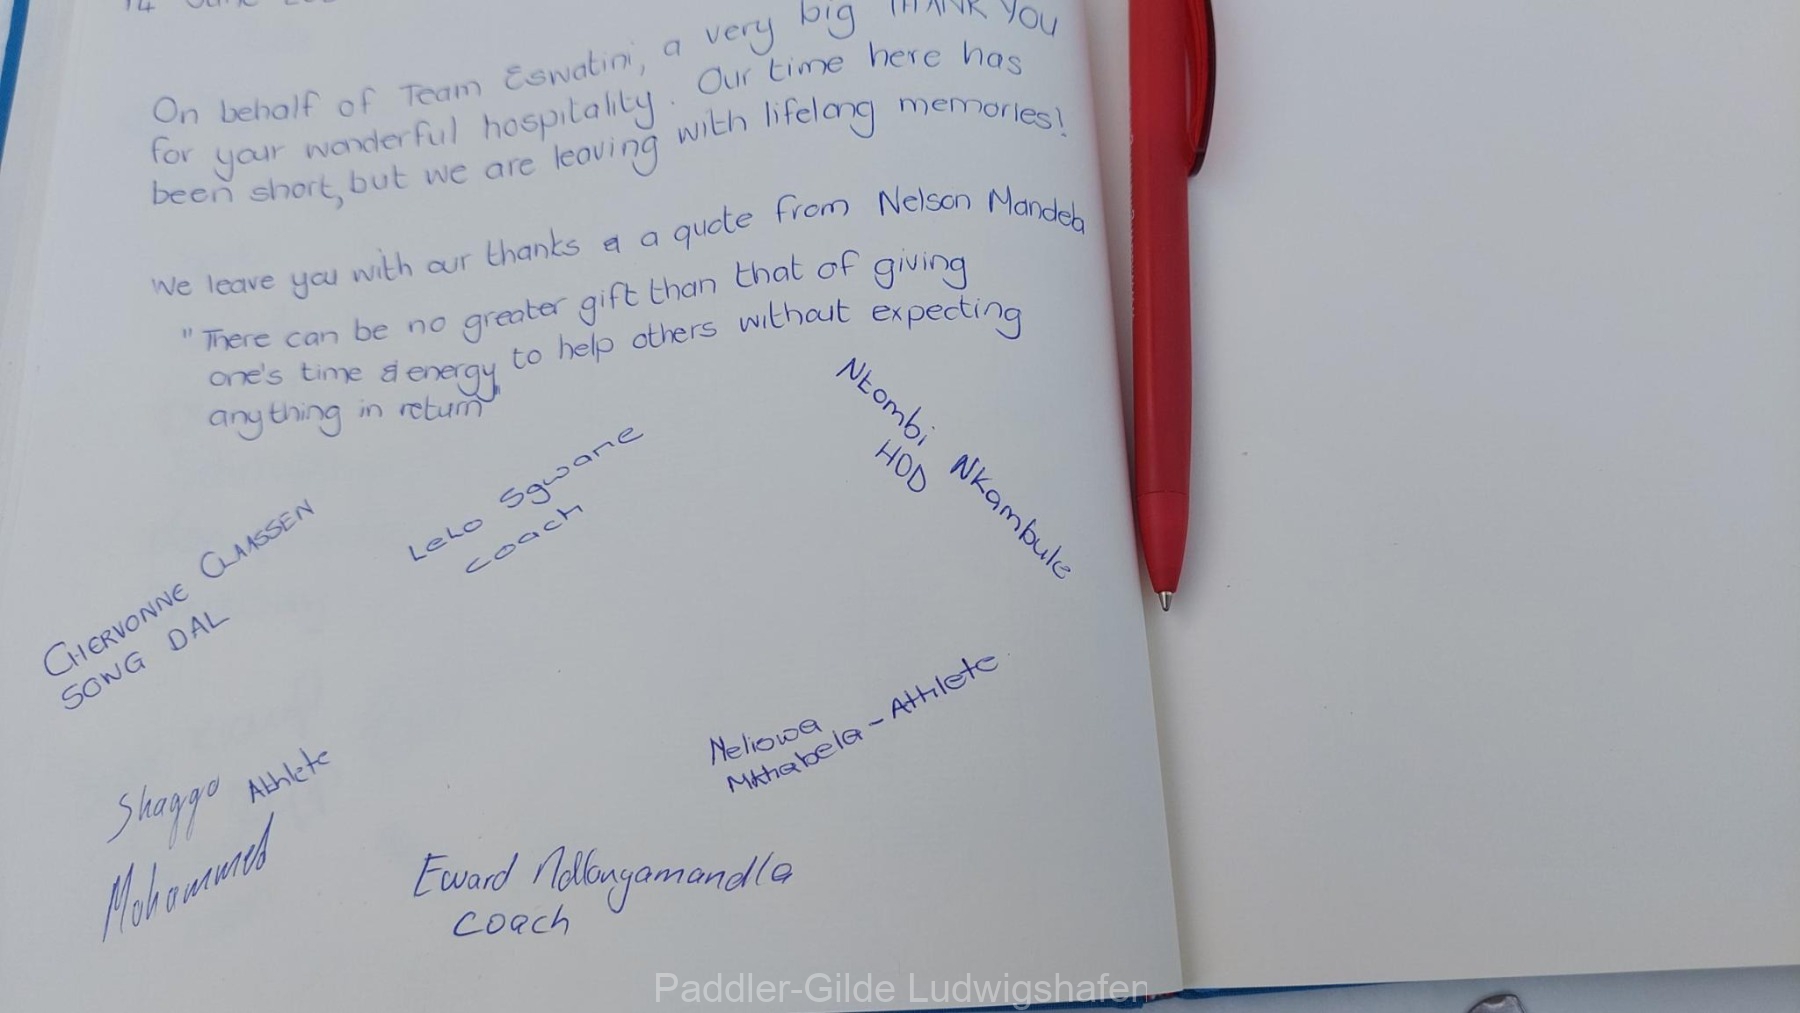 14 June
On behalf of Team Eswatini, a very big THANK YOU
for your wonderful hospitality. Our time here has
been short, but we are leaving with lifelong memories!
We leave you with our thanks & a quote from Nelson Mandela
"There can be no greater gift than that of giving
one's time & energy to help others without expecting
anything in return"
Ntombi Nkambule
HOD
LeLo Sgwane
coach
CHERVONNE CLAASSEN
SONG DAL
Neliowa
Mkhabela - Athlete
Shaggo Athlete
Mohammed
Eward Ndlangamandla
Coach
Paddler-Gilde Ludwigshafen